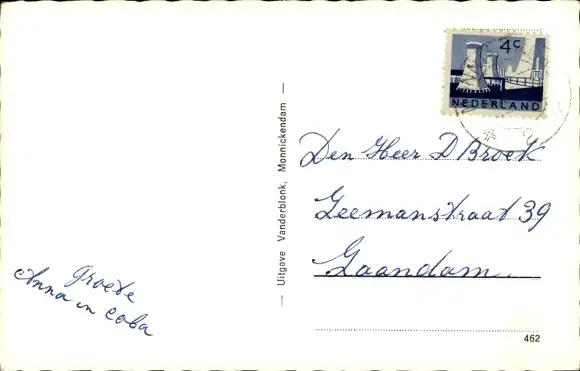 groete
Anna en Coba
— Uitgave Vanderblonk, Monnickendam —
4c
NEDERLAND
Den Heer D Broek
Zeemanstraat 39
Zaandam.
462